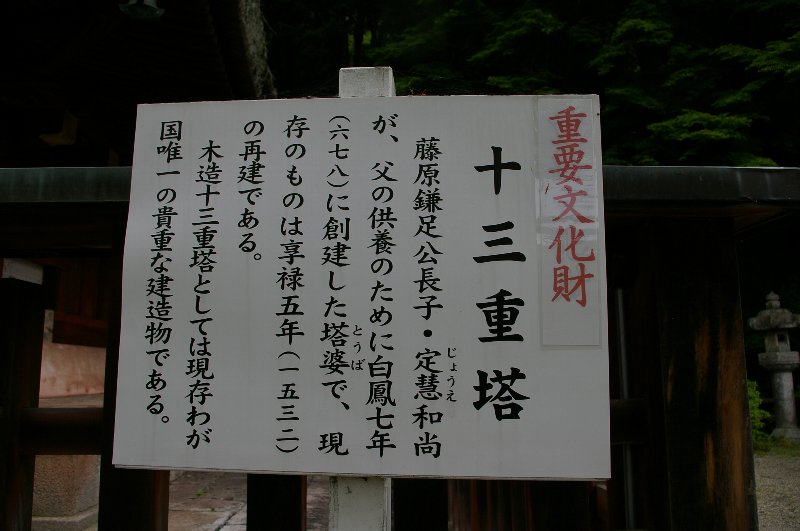 重要文化財
十三重塔
藤原鎌足公長子・定慧和尚
じょうえ
が、父の供養のために白鳳七年
(六七八)に創建した塔婆で、現
とうば
存のものは享禄五年(一五三二)
の再建である。
木造十三重塔としては現存わが
国唯一の貴重な建造物である。